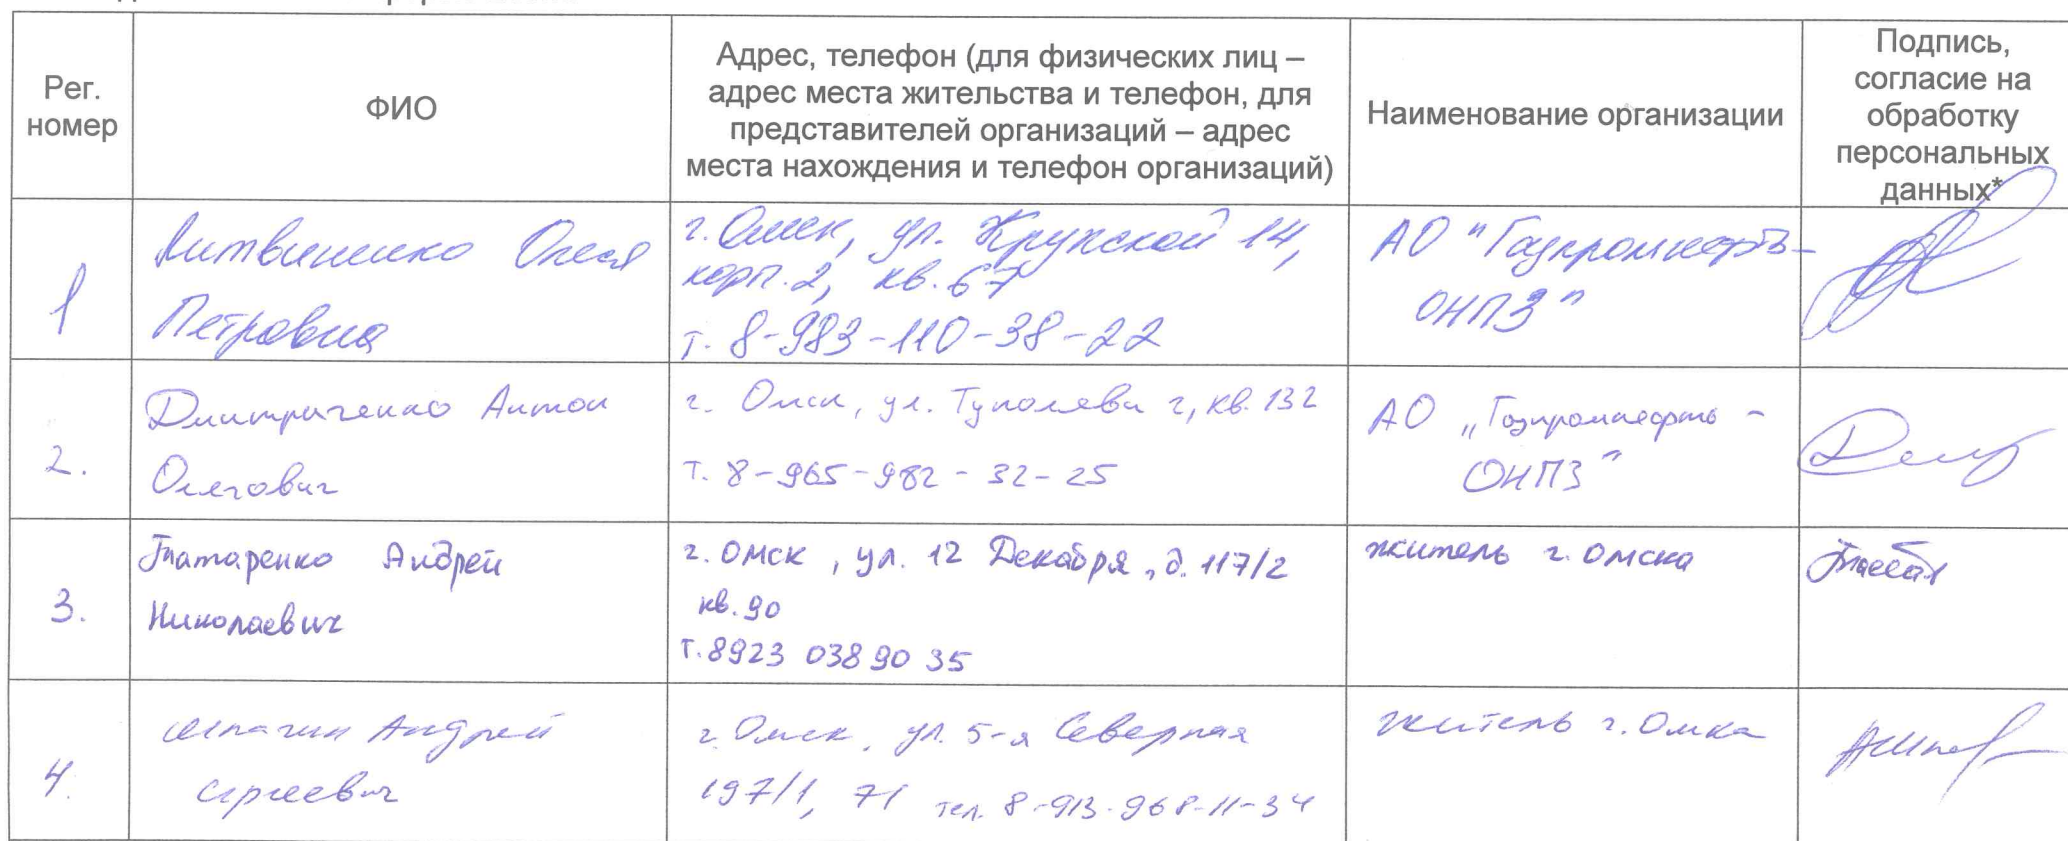 Рег. номер
ФИО
Адрес, телефон (для физических лиц –
адрес места жительства и телефон, для
представителей организаций – адрес
места нахождения и телефон организаций)
Наименование организации
Подпись,
согласие на
обработку
персональных
данных*
1
Литвиненко Олеся
Петровна
г. Омск, ул. Крупской 14,
корп. 2, кв. 67
т. 8-983-110-38-22
АО "Газпромнефть-
ОНПЗ"
2.
Дмитриченко Антон
Олегович
г. Омск, ул. Туполева 2, кв. 132
т. 8-965-982-32-25
АО „Газпромнефть -
ОНПЗ"
3.
Татаренко Андрей
Николаевич
г. Омск, ул. 12 Декабря, д. 117/2
кв. 90
т. 8923 038 90 35
житель г. Омска
4.
Андрей
Сергеевич
г. Омск, ул. 5-я Северная
197/1, 71 тел. 8-913-968-11-34
житель г. Омка